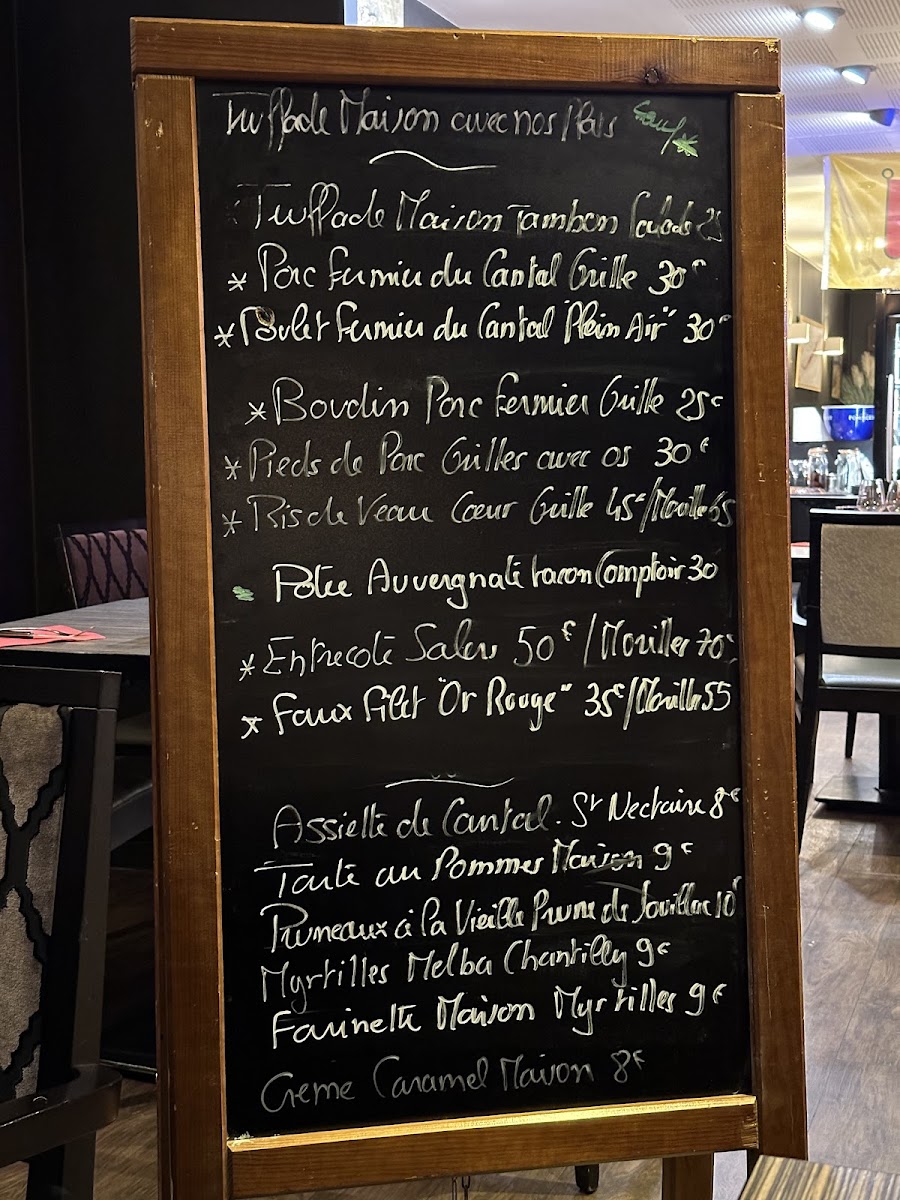 Truffade Maison avec nos Plats Sauf *
Truffade Maison Jambon Salade 25
* Porc Fermier du Cantal Grille 30€
* Poulet Fermier du Cantal "Plein Air" 30€
* Boudin Porc Fermier Grille 25€
* Pieds de Porc Grilles avec os 30€
* Ris de Veau Cœur Grille 45€/Morille 65
Potée Auvergnate Façon Comptoir 30
* Entrecote Salers 50€/Morilles 70€
* Faux Filet "Or Rouge" 35€/Morille 55
Assiette de Cantal. St Nectaire 8€
Tarte au Pommes Maison 9€
Pruneaux à la Vieille Prune de Souillac 10€
Myrtilles Melba Chantilly 9€
Farinette Maison Myrtilles 9€
Creme Caramel Maison 8€